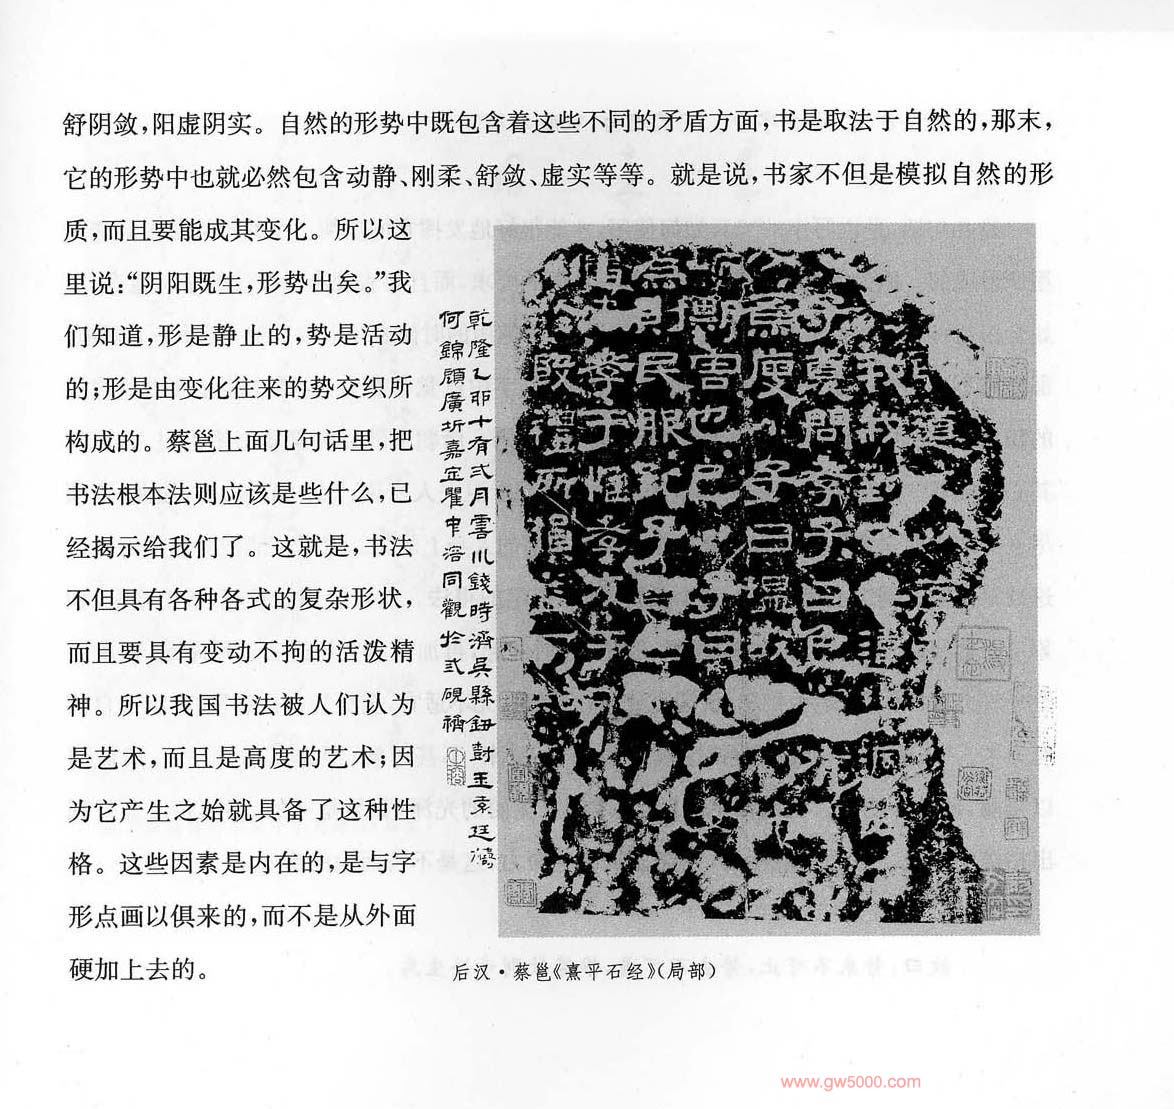 舒阴敛,阳虚阴实。自然的形势中既包含着这些不同的矛盾方面,书是取法于自然的,那末,
它的形势中也就必然包含动静、刚柔、舒敛、虚实等等。就是说,书家不但是模拟自然的形
质,而且要能成其变化。所以这
里说:“阴阳既生,形势出矣。”我
们知道,形是静止的,势是活动
的;形是由变化往来的势交织所
构成的。蔡邕上面几句话里,把
书法根本法则应该是些什么,已
经揭示给我们了。这就是,书法
不但具有各种各式的复杂形状,
而且要具有变动不拘的活泼精
神。所以我国书法被人们认为
是艺术,而且是高度的艺术;因
为它产生之始就具备了这种性
格。这些因素是内在的,是与字
形点画以俱来的,而不是从外面
硬加上去的。
道
我我對
子夏問孝子曰色
廋 子曰溫故
害也已 子曰
則民服孔子曰
孝于惟孝友于兄
禮所損
乾隆乙卯十有弍月雲川錢時濟吳縣鈕尌玉袁廷檮
何錦顧廣圻嘉定瞿中溶同觀於弍硯
后汉·蔡邕《熹平石经》(局部)
www.gw5000.com